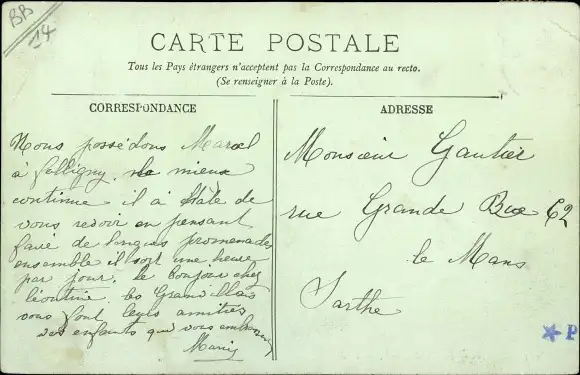 BB
14
CARTE POSTALE
Tous les Pays étrangers n'acceptent pas la Correspondance au recto.
(Se renseigner à la Poste).
CORRESPONDANCE
Nous possédons Marcel
à le mieux
continue il à hate de
vous revoir en pensant
faire de longues promenades
ensemble il sort une heure
par jour. le bonjour chez
Léontine. les
vous font leurs amitiés
vos enfants qui vous embrassent
ADRESSE
Monsieur Gautier
rue Grande 62
le Mans
Sarthe
P